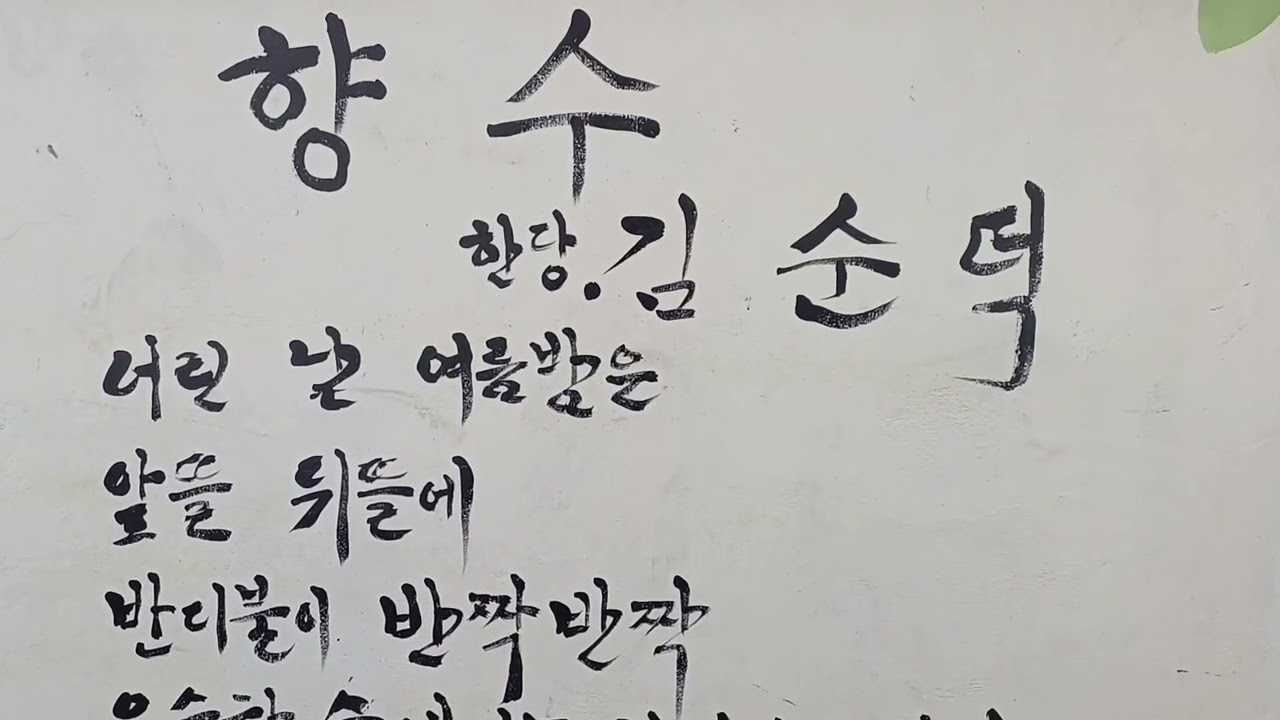 향 수
한당. 김 순 덕
어릿 날 여름밤은
앞뜰 뒤뜰에
반디불이 반짝반짝